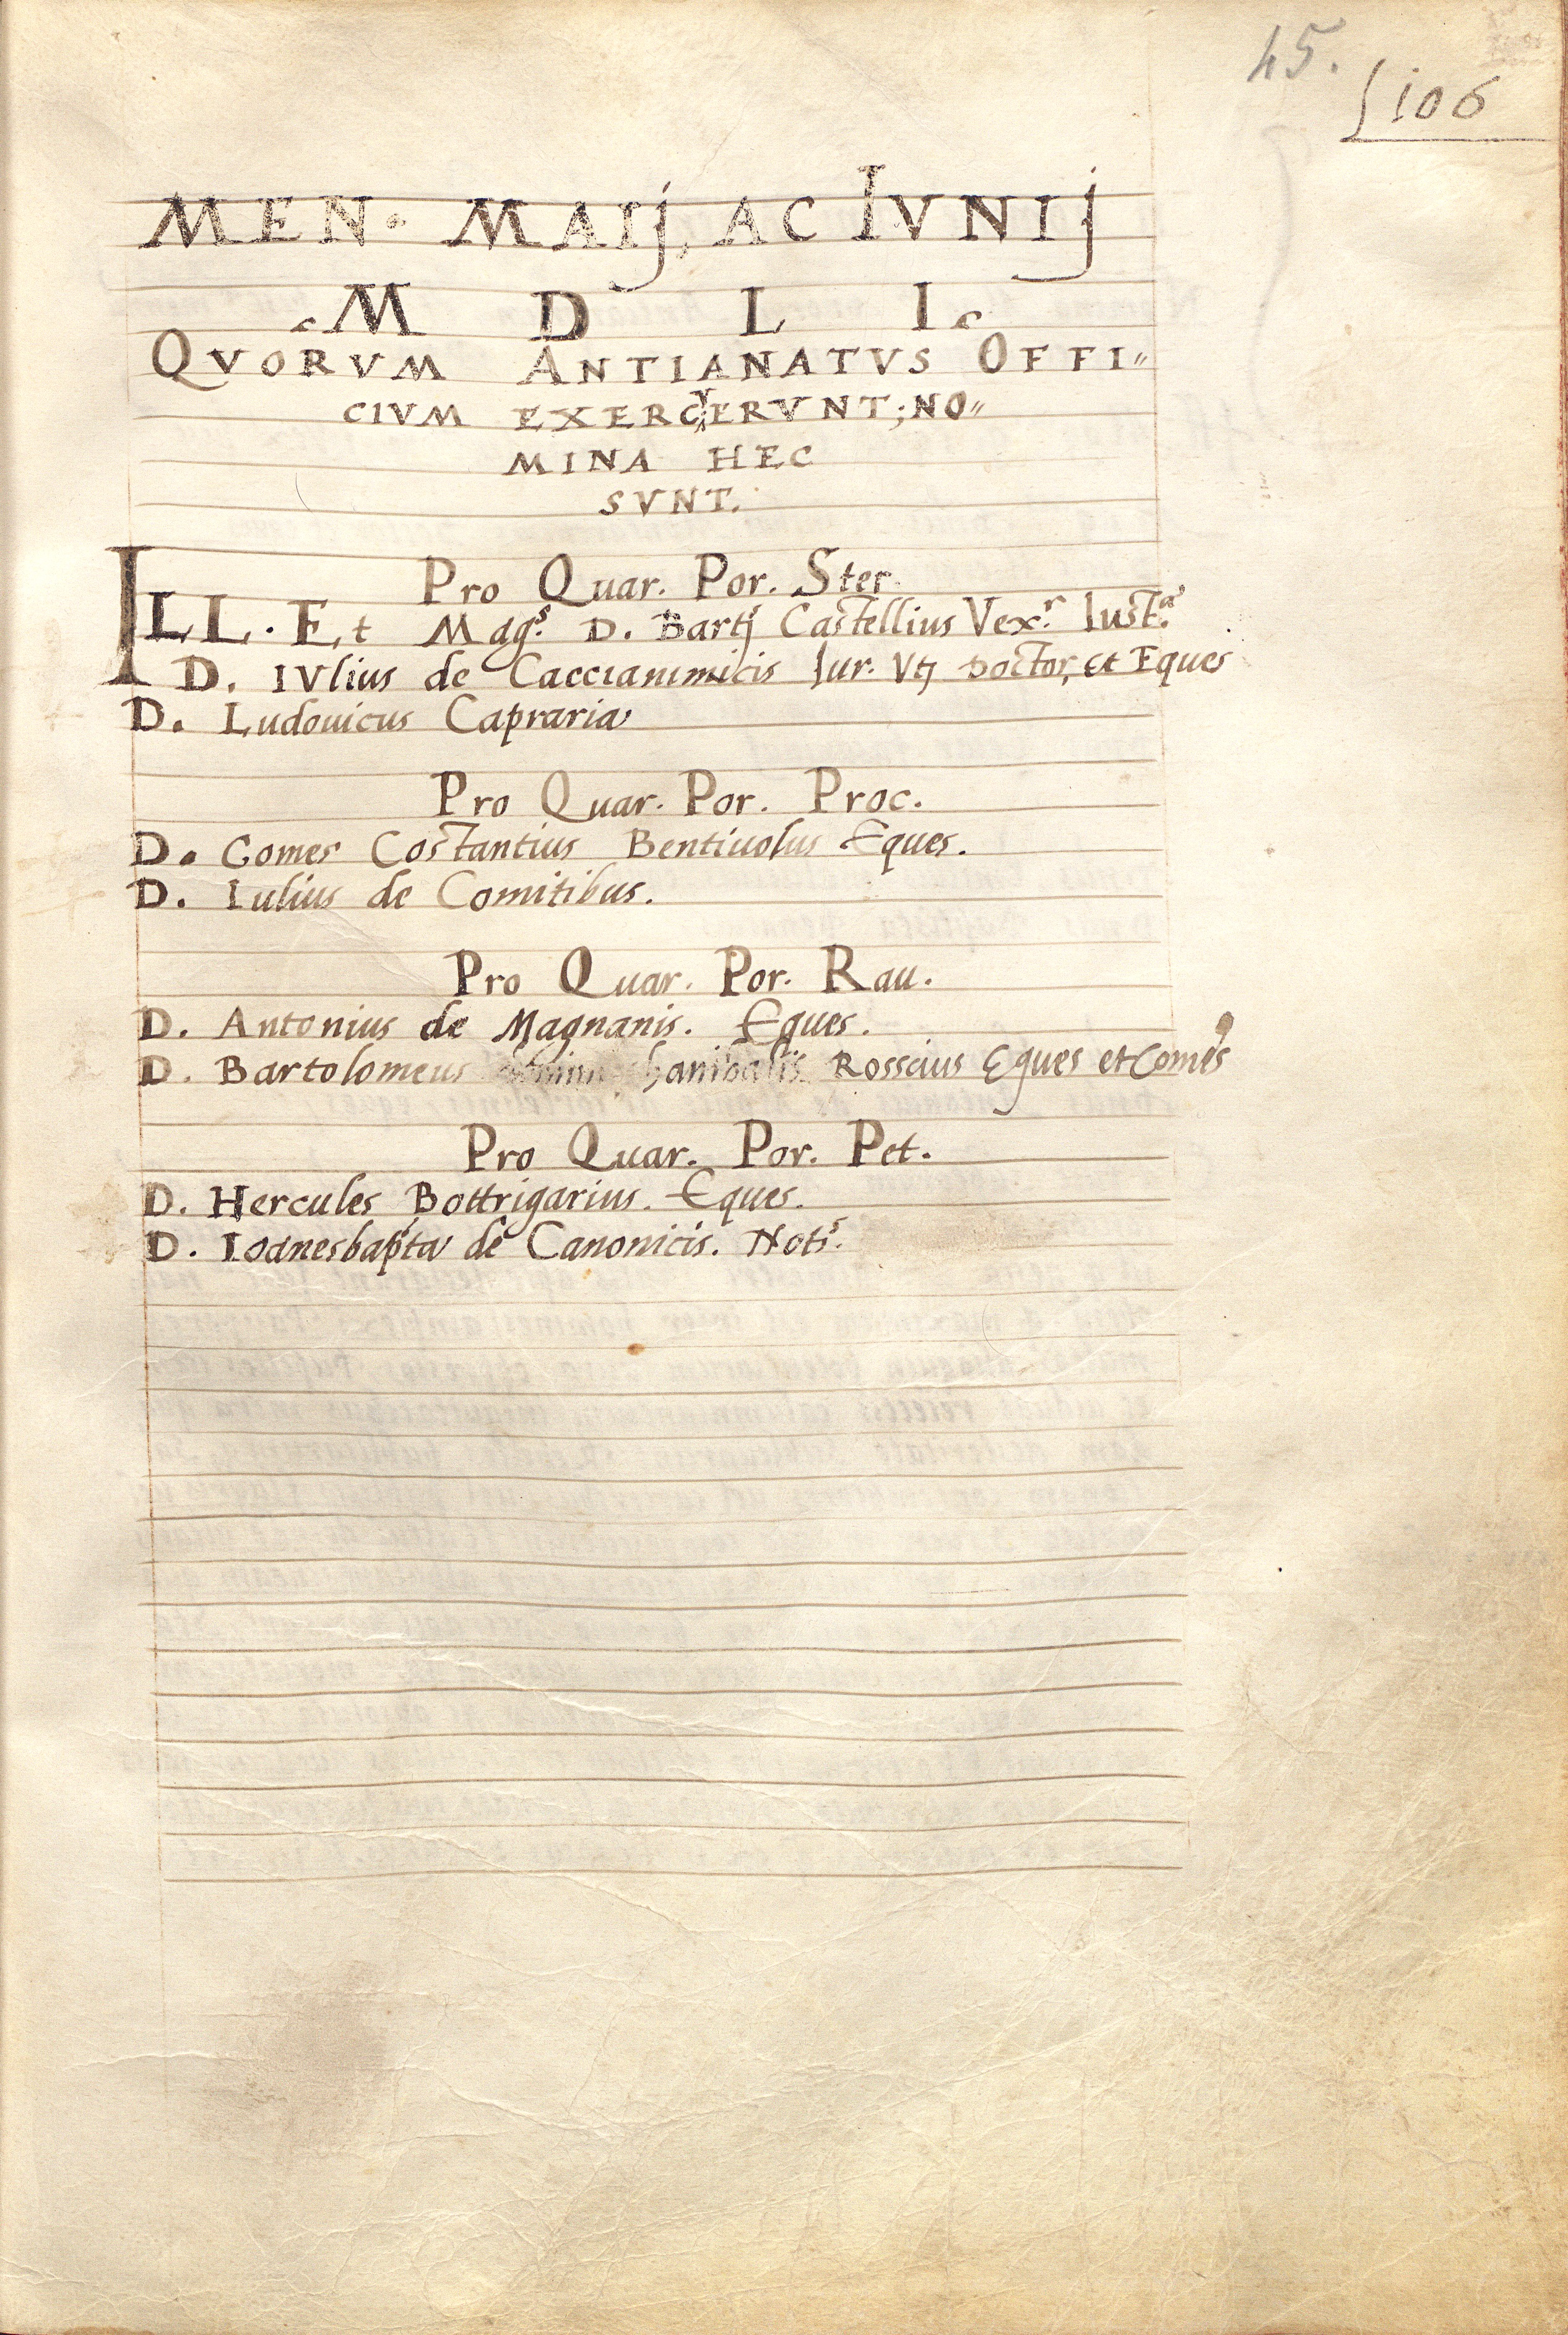 45.
106
MEN. MAIJ, AC IVNIJ
M D L I
QVORVM ANTIANATVS OFFI"
CIVM EXERCVERVNT; NO"
MINA HEC
SVNT.
Pro Quar. Por. Ster.
ILL. Et Mag.s D. Bartĵ Castellius Vex.r Iust.a
D. IVlius de Caccianimicis Iur. Vtj Doctor, et Eques
D. Ludouicus Capraria
Pro Quar. Por. Proc.
D. Comes Costantius Bentiuolus Eques.
D. Iulius de Comitibus.
Pro Quar. Por. Rau.
D. Antonius de Magnanis. Eques.
D. Bartolomeus hanibalis Rosseius Eques et Comes
Pro Quar. Por. Pet.
D. Hercules Bottrigarius. Eques.
D. Ioanesbapta de Canonicis. Not.s